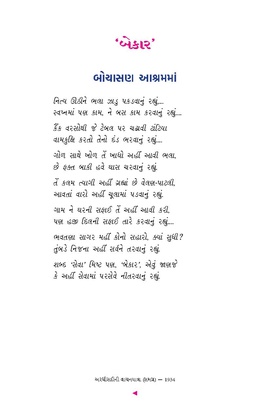 ‘બેકાર’
બોચાસણ આશ્રમમાં
નિત્ય ઊઠીને ભલા ઝાડુ પકડવાનું રહ્યું...
સ્વપ્નમાં પણ કામ, ને બસ કામ કરવાનું રહ્યું...
કૈંક વરસોથી જે ટેબલ પર ચઢાવી ટાંટિયા
વામકુક્ષિ કરતો તેનો દંડ ભરવાનું રહ્યું...
ગોળ સાથે ખોળ તેં ખાધો અહીં આવી ભલા,
છે ફક્ત બાકી હવે ઘાસ ચરવાનું રહ્યું.
તેં કલમ ત્યાગી અહીં ગ્રહ્યાં છે વેલણ-પાટલી,
આવતાં વારો અહીં ચૂલામાં પડવાનું રહ્યું.
ગામ ને ઘરની સફાઈ તેં અહીં આવી કરી,
પણ હજી દિલની સફાઈ તારે કરવાનું રહ્યું...
ભવતણા સાગર મહીં કોનો સહારો, ક્યાં સુધી?
તુંબડે નિજના અહીં સર્વને તરવાનું રહ્યું.
શબ્દ ‘સેવા’ મિષ્ટ પણ, ‘બેકાર’, એવું જાણજે
કે અહીં સેવામાં પરસેવે નીતરવાનું રહ્યું.
— 1934